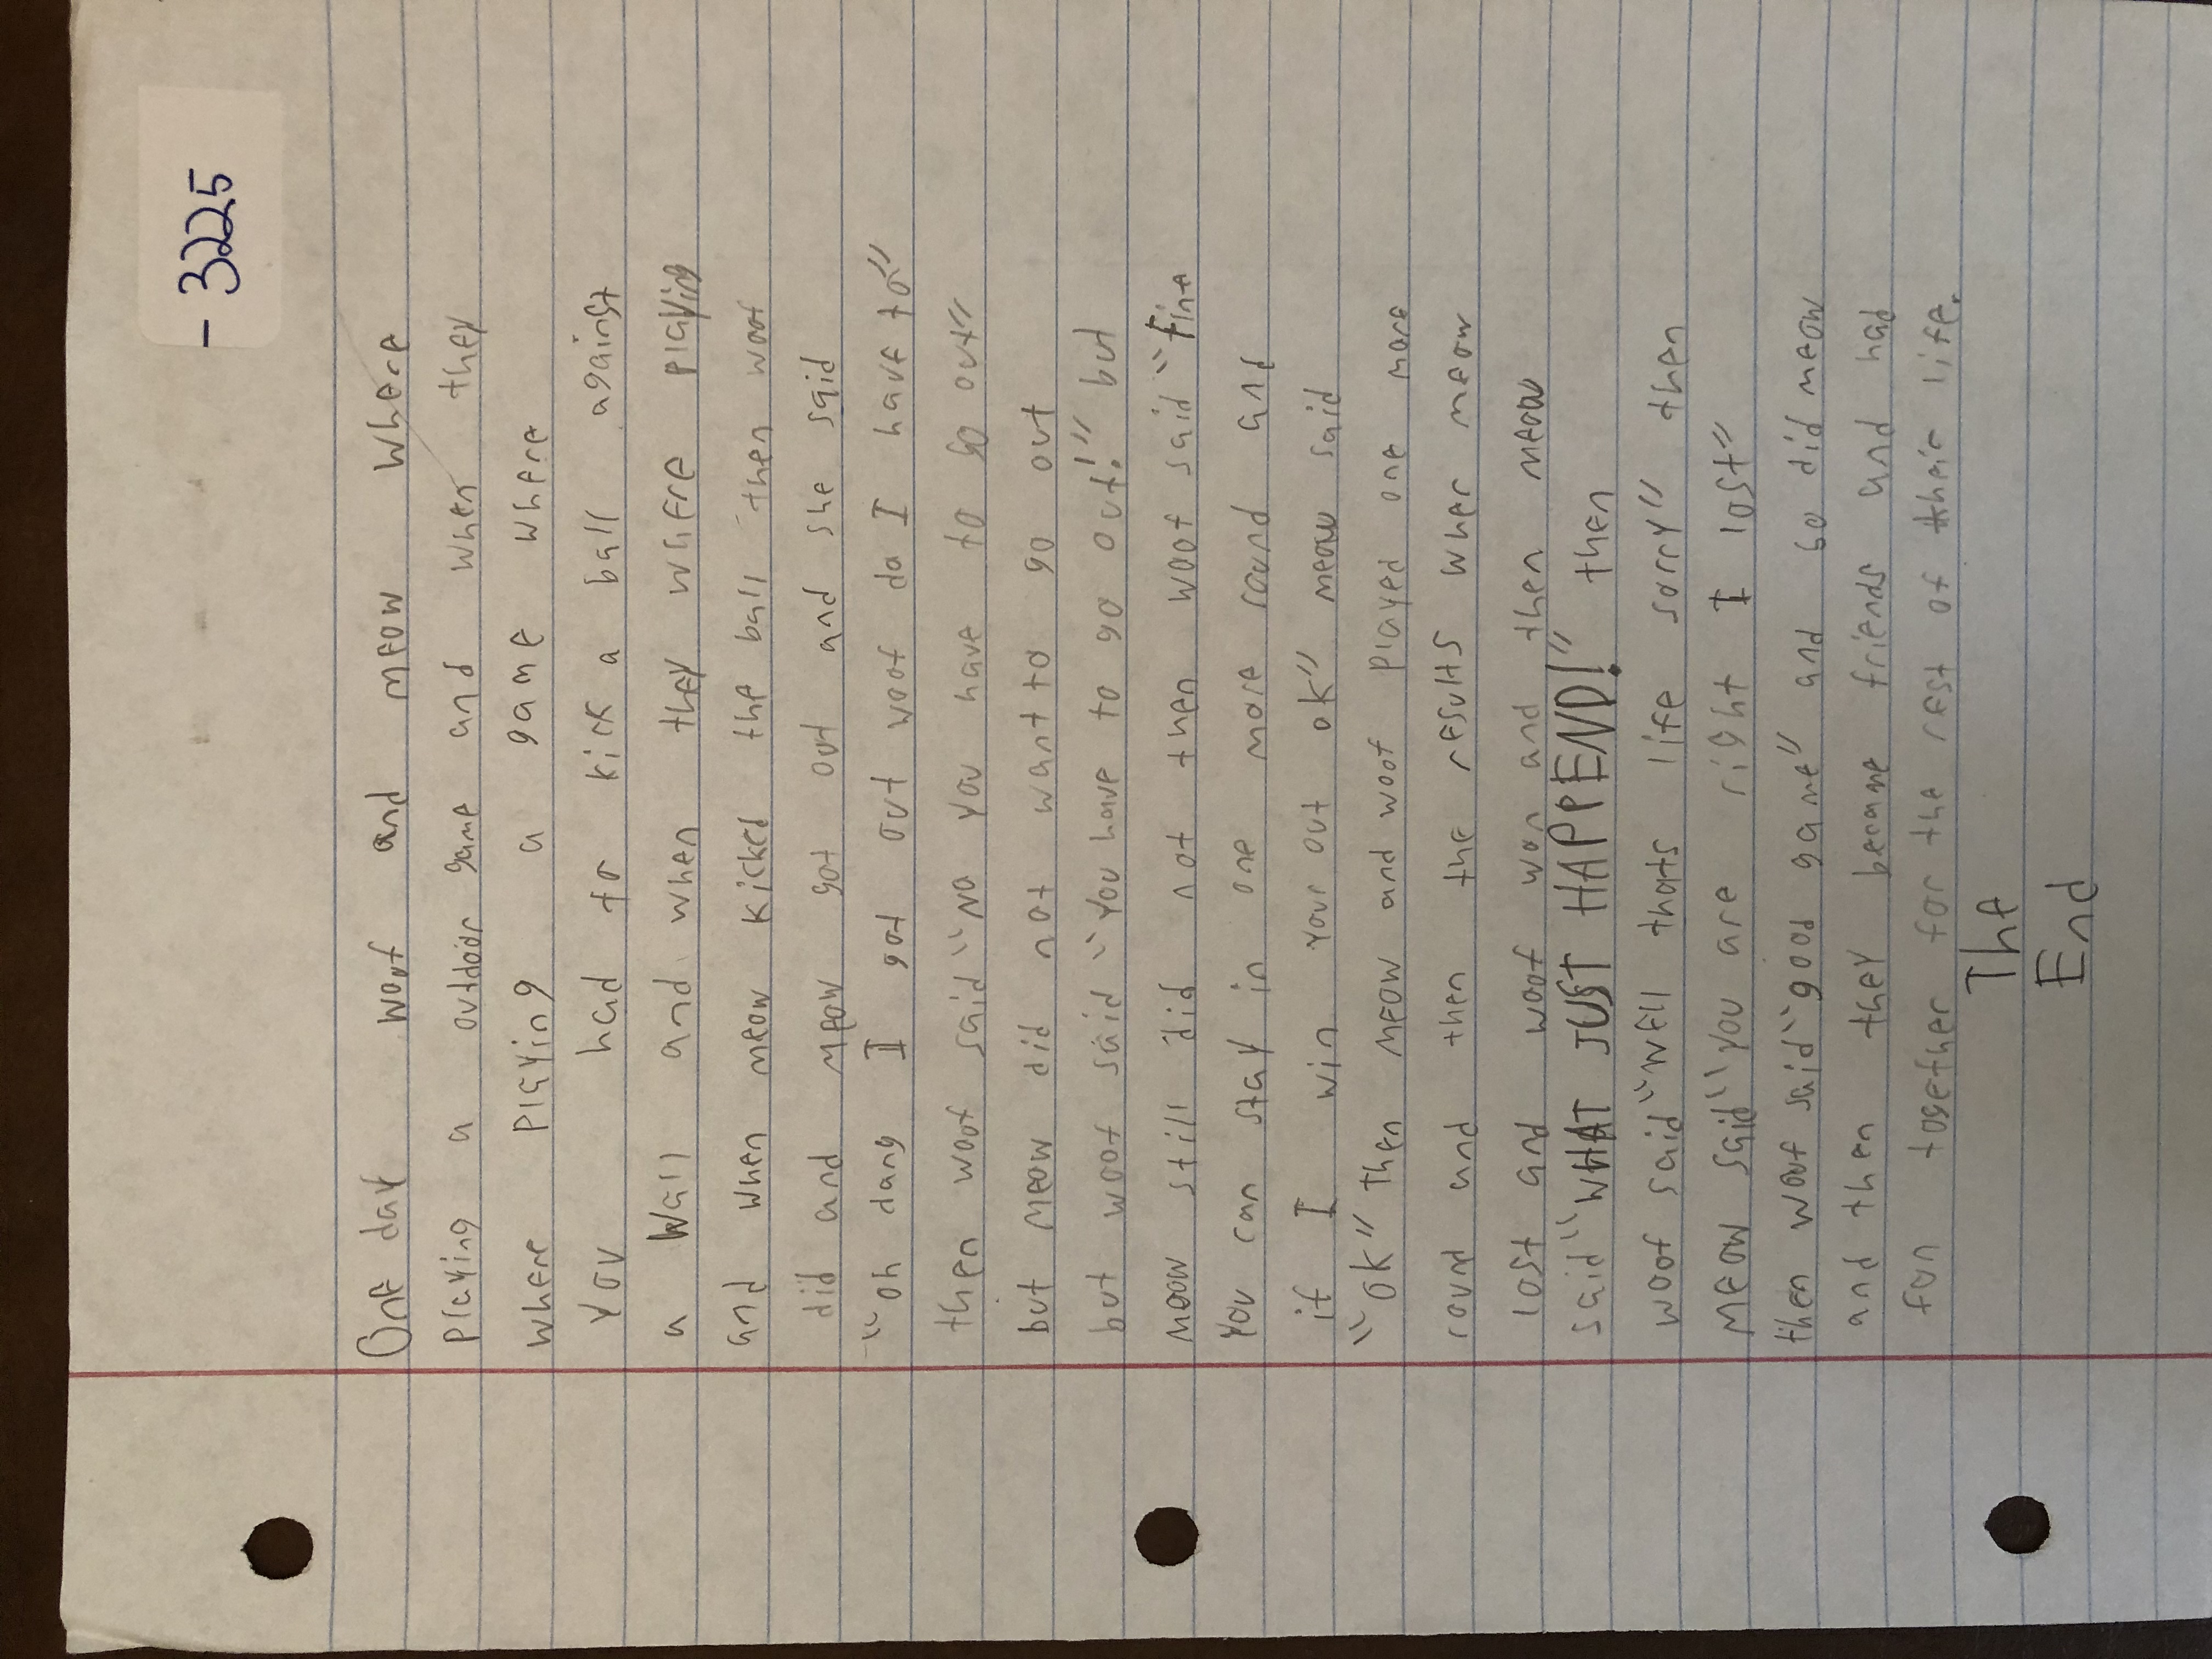 - 3225
One day woof and meow where
playing a outdoor game and when they
where playing a game where
you had to kick a ball against
a wall and when they where playing
and when meow kicked the ball then woof
did and meow got out and she said
"oh dang I got out woof do I have to"
then woof said "No you have to go out"
but meow did not want to go out
but woof said "You have to go out!" but
meow still did not then woof said "Fine
you can stay in one more round and
if I win your out ok" meow said
"ok" then meow and woof played one more
round and then the results wher meow
lost and woof won and then meow
said "WHAT JUST HAPPEND!" then
woof said "well thats life sorry" then
meow said "you are right I lost"
then woof said "good game" and so did meow
and then they became friends and had
fun together for the rest of their life.
The
End